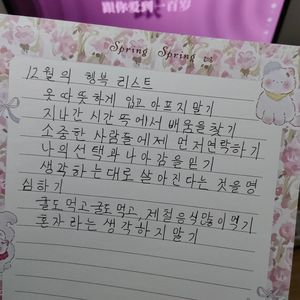 跟你爱到一百岁
Spring Spring is
12월의 행복 리스트
옷 따뜻하게 입고 아프지 말기
지나간 시간 뚝에서 배움을 찾기
소중한 사람들에게 먼저 연락하기
나의 선택과 나아감을 믿기
생각하는대로 살아진다는 것을 명
심하기
귤도 먹고 굴도 먹고, 제철음식 많이 먹기
혼자라는 생각하지 말기